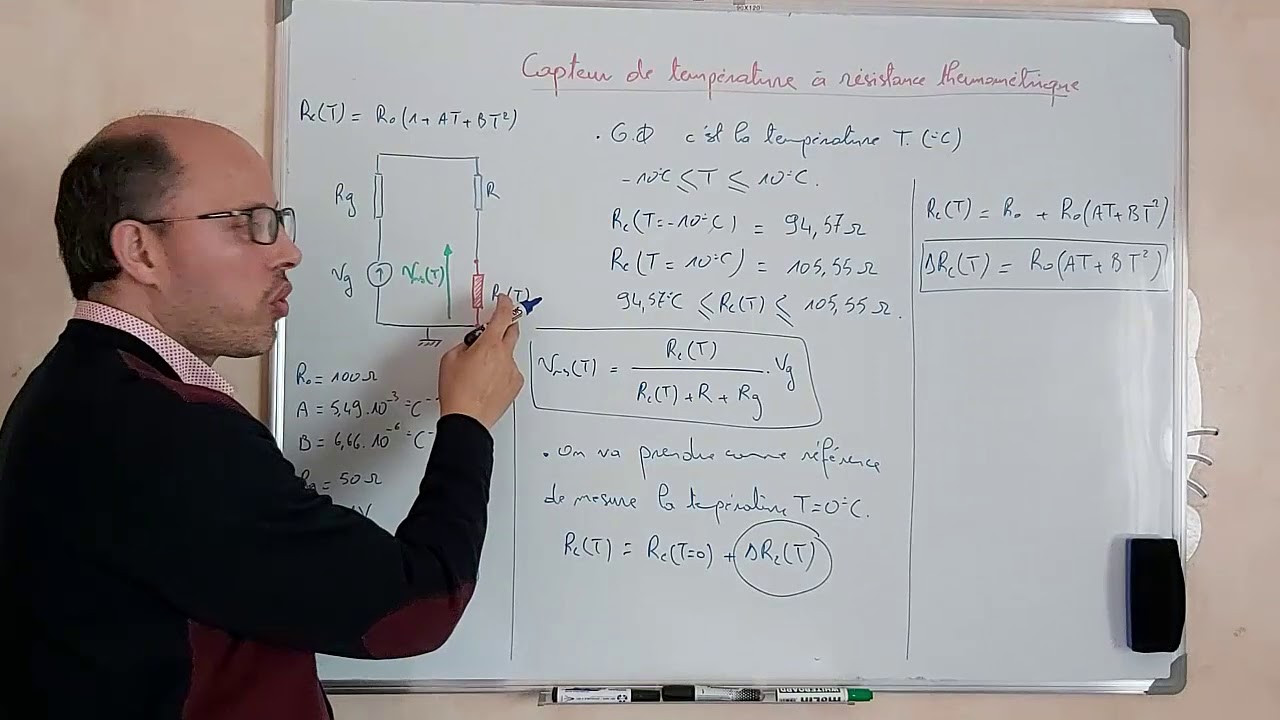 90x120
Capteur de température à résistance thermométrique
Rc(T) = R0(1+AT+BT²)
Rg
R
Vg
Vms(T)
Rc(T)
R0 = 100Ω
A = 5,49.10⁻³ °C⁻
B = 6,66.10⁻⁶ °C⁻
Rg = 50Ω
V
. G.Φ c'est la température T. (°C)
-10°C ⩽ T ⩽ 10°C.
Rc(T=-10°C) = 94,57Ω
Rc(T=10°C) = 105,55Ω
94,57°C ⩽ Rc(T) ⩽ 105,55Ω.
Vms(T) = Rc(T) / Rc(T)+R+Rg . Vg
. On va prendre comme référence
de mesure la température T=0°C.
Rc(T) = Rc(T=0) + ΔRc(T)
Rc(T) = R0 + R0(AT+BT²)
ΔRc(T) = R0(AT+BT²)
WHITEBOARD
molin